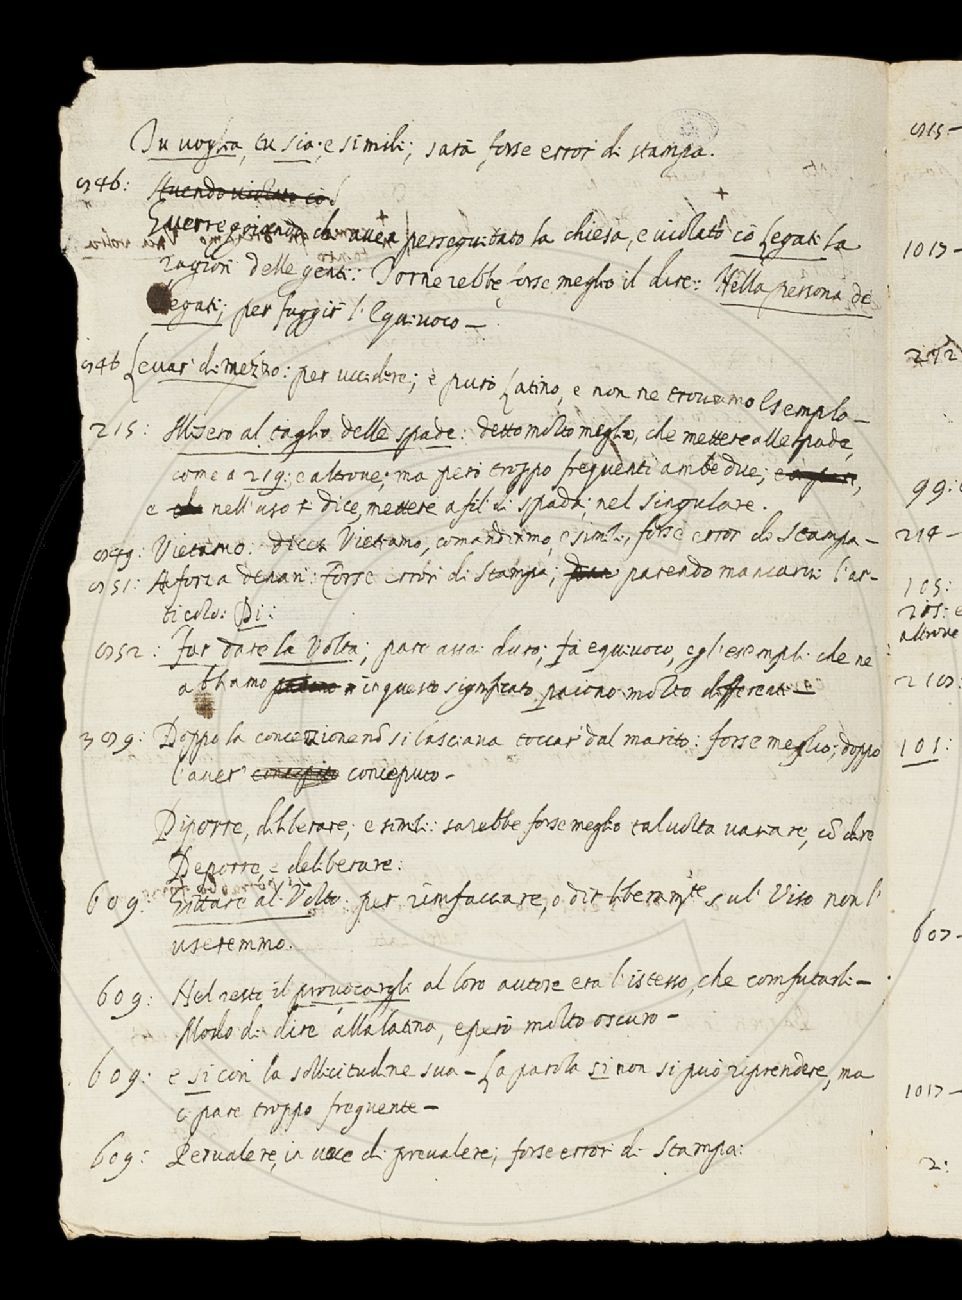 Tu voglia, tu sia; e simili; sarà forse error di stampa.
946: Avendo violato cō
Guerreggiando che avea perseguitato la chiesa, e violatò cō Legati la
ragion delle genti: Tornerebbe forse meglio il dire: Nella persona de
Legati; per fuggir l'Equivoco –
946 Levar di mezzo: per uccidere; è puro Latino, e non ne troviamo Esemplo –
215: Misero al taglio delle spade: detto molto meglio, che mettere alle spade,
come a 219: e altrove; ma però troppo frequenti ambedue;
e nell'uso si dice, mettere a fil di spada, nel singulare.
949: Vietamo: dicesi Vietiamo, comandiamo, e simili, forse error di stampa –
951: A forza denari: Forse error di stampa; parendo mancarvi l'ar-
ticolo: Di:
952: Far dare la Volta; pare assai duro; fa equivoco, e gl'esempli che ne
abbiamo in questo significato, paiono molto differenti –
399: Doppo la concezione nō si lasciava toccar dal marito: forse meglio; doppo
l'aver concepito conceputo –
Diporre, diliberare; e simili: sarebbe forse meglio talvolta variare, cō dire
Deporre, e deliberare:
609: Gittare al Volto: per rimfacciare, o dir liberamte sul Viso non l'
useremmo.
609: Nel resto il provocargli al loro autore era l'istesso, che comfutarli –
Modo di dire alla latina, e però molto oscuro –
609: e si con la sollicitudine sua – La parola si non si può riprendere, ma
ci pare troppo frequente –
609: Pervalere, in vece di prevalere; forse error di stampa:
915 –
1017 –
212
99: e
214 –
105:
205: e
altrove
210:
101:
607 –
1017 –
2: